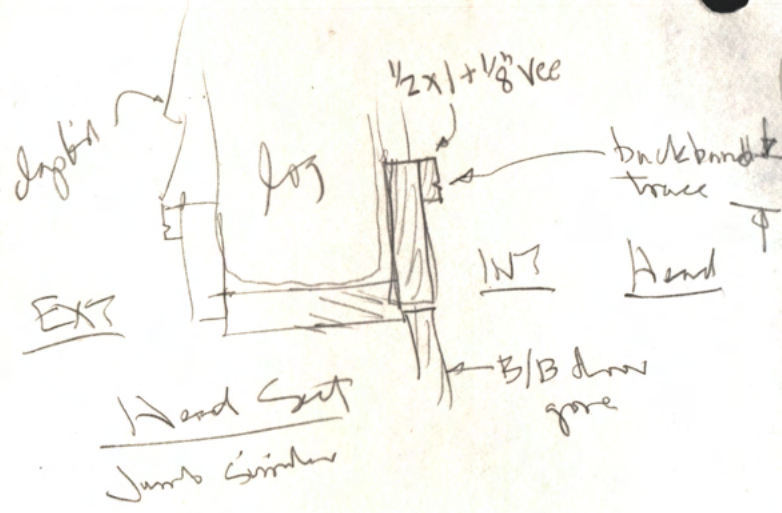 1/2 x 1 + 1/8" Vee
log
backband
trace
INT
Head
EXT
B/B door
gone
Head Sect
Jamb Similar